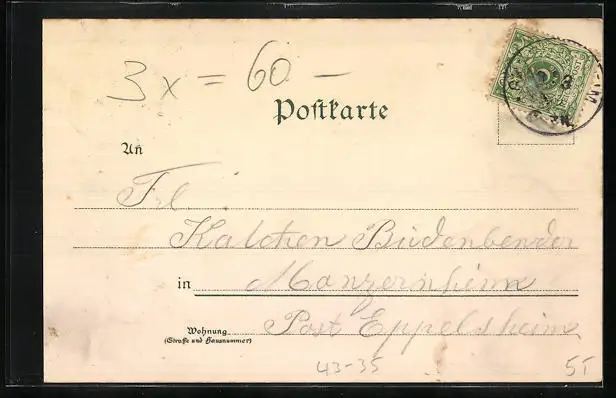 3 x = 60 –
Postkarte
An
Frl.
Kätchen Büdenbender
in Monzernheim
Wohnung Post Eppelsheim
(Straße und Hausnummer)
43-35
5T